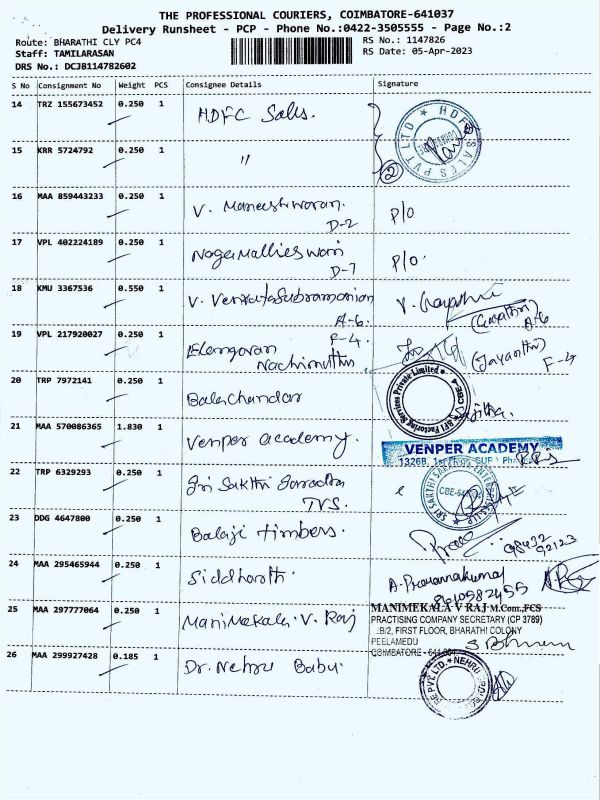 THE PROFESSIONAL COURIERS, COIMBATORE-641037
Delivery Runsheet - PCP - Phone No.:0422-3505555 - Page No.:2
Route: BHARATHI CLY PC4
RS No.: 1147826
Staff: TAMILARASAN
RS Date: 05-Apr-2023
DRS No.: DCJB114782602
S No Consignment No Weight PCS Consignee Details Signature
14 TRZ 155673452 0.250 1 HDFC Sales.
HDFC SALES PVT LTD
15 KRR 5724792 0.250 1 "
2
16 MAA 859443233 0.250 1 V. Maneeshwaran. P/O
D-2
17 VPL 402224189 0.250 1 Nagamallieswari P/O.
D-7
18 KMU 3367536 0.550 1 V. Venkatasubramanian V. Gayathri
A-6. (Gayathri) A-6
19 VPL 217920027 0.250 1 F-4.
Elangovan (Jayanthi)
Nachimuthu F-4
20 TRP 7972141 0.250 1 Balachandar
Factoring Services Private Limited
CBE-4
21 MAA 570086365 1.830 1 Venper academy.
VENPER ACADEMY
22 TRP 6329293 0.250 1 Sri Sakthi
TVS.
SRI SAKTHI
23 DDG 4647800 0.250 1 Balaji timbers.
98432
92123
24 MAA 295465944 0.250 1 Siddharth.
25 MAA 297777064 0.250 1 Manimekala. V. Raj
MANIMEKALA V RAJ M.Com.,FCS
PRACTISING COMPANY SECRETARY (CP 3769)
B/2, FIRST FLOOR, BHARATHI COLONY
PEELAMEDU
COIMBATORE
26 MAA 299927428 0.185 1 Dr. Nehru Babu.
PVT LTD. NEHRU